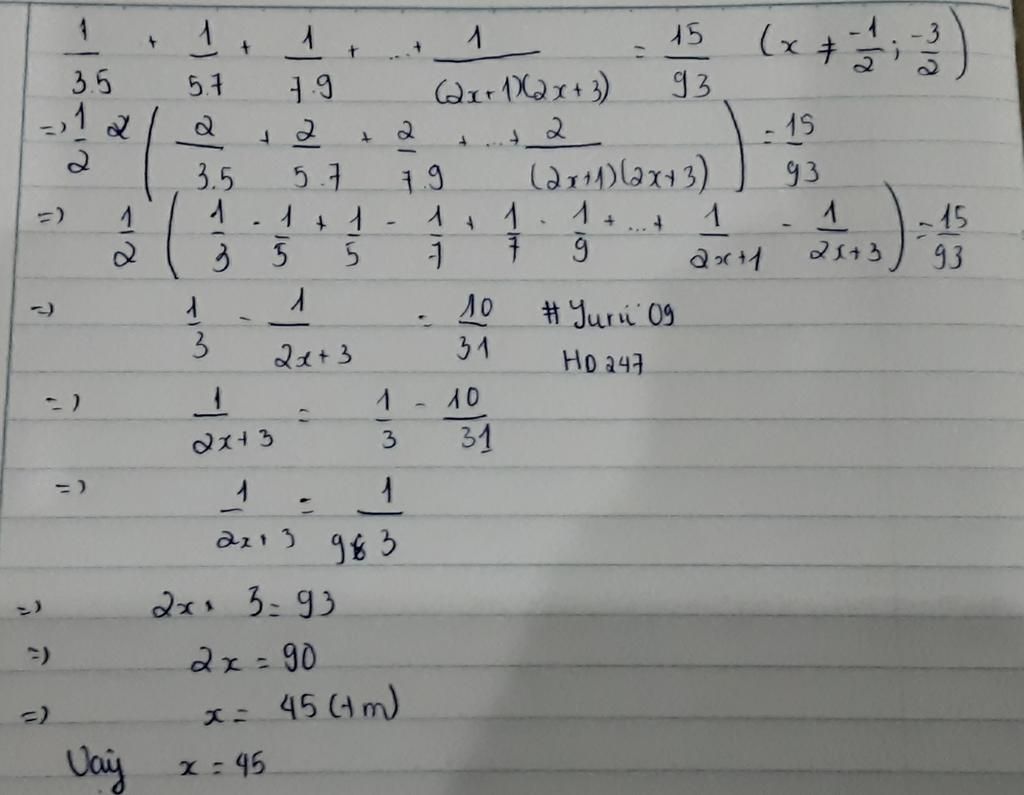 1/3.5 + 1/5.7 + 1/7.9 + ... + 1/(2x+1)(2x+3) = 15/93 (x ≠ -1/2; -3/2)
=> 1/2 (2/3.5 + 2/5.7 + 2/7.9 + ... + 2/(2x+1)(2x+3)) = 15/93
=> 1/2 (1/3 - 1/5 + 1/5 - 1/7 + 1/7 - 1/9 + ... + 1/2x+1 - 1/2x+3) = 15/93
=> 1/3 - 1/2x+3 = 10/31 # Yurii 09
HD 247
=> 1/2x+3 = 1/3 - 10/31
=> 1/2x+3 = 1/93
=> 2x+3 = 93
=> 2x = 90
=> x = 45 (tm)
Vaỹ x = 45